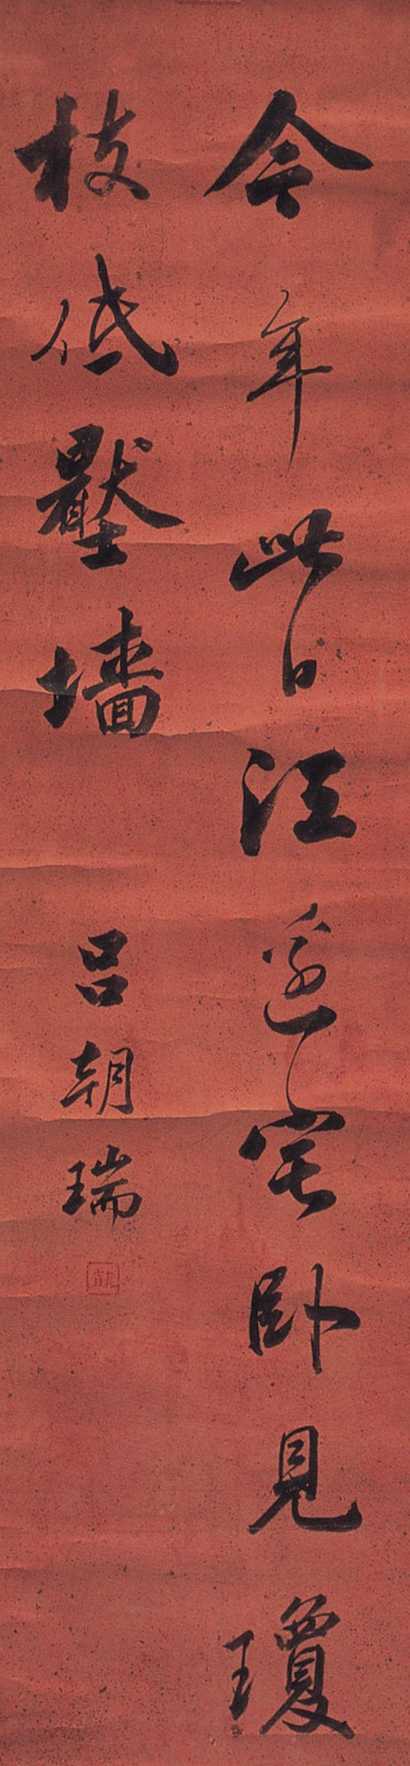 今年此日江邊宅臥見瓊
枝低壓墻
呂朝瑞